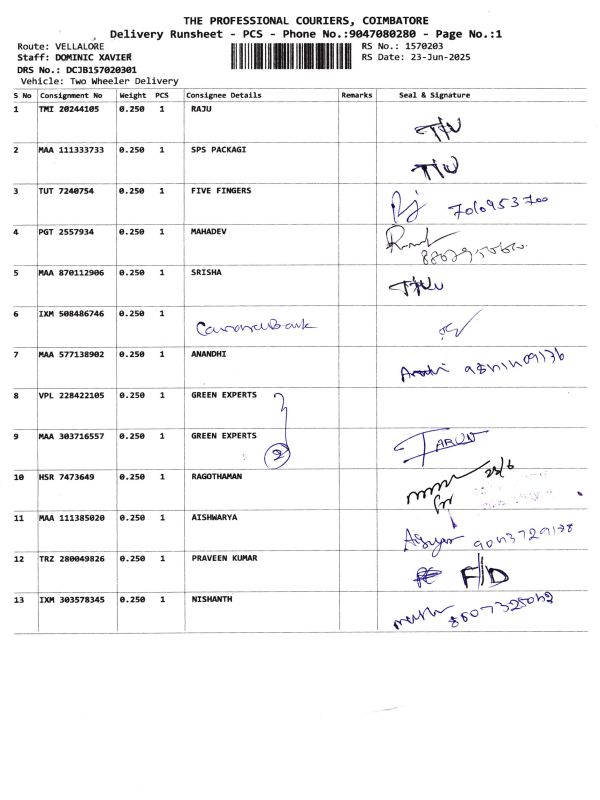 THE PROFESSIONAL COURIERS, COIMBATORE
Delivery Runsheet - PCS - Phone No.:9047080280 - Page No.:1
Route: VELLALORE
RS No.: 1570203
Staff: DOMINIC XAVIER
RS Date: 23-Jun-2025
DRS No.: DCJB157020301
Vehicle: Two Wheeler Delivery
S No Consignment No Weight PCS Consignee Details Remarks Seal & Signature
1 TMI 20244105 0.250 1 RAJU
2 MAA 111333733 0.250 1 SPS PACKAGI
3 TUT 7240754 0.250 1 FIVE FINGERS
4 PGT 2557934 0.250 1 MAHADEV
5 MAA 870112906 0.250 1 SRISHA
6 IXM 508486746 0.250 1 Canara Bank
7 MAA 577138902 0.250 1 ANANDHI
8 VPL 228422105 0.250 1 GREEN EXPERTS
9 MAA 303716557 0.250 1 GREEN EXPERTS 2 TARUN
10 HSR 7473649 0.250 1 RAGOTHAMAN 23/6
11 MAA 111385020 0.250 1 AISHWARYA
12 TRZ 280049826 0.250 1 PRAVEEN KUMAR F/D
13 IXM 303578345 0.250 1 NISHANTH